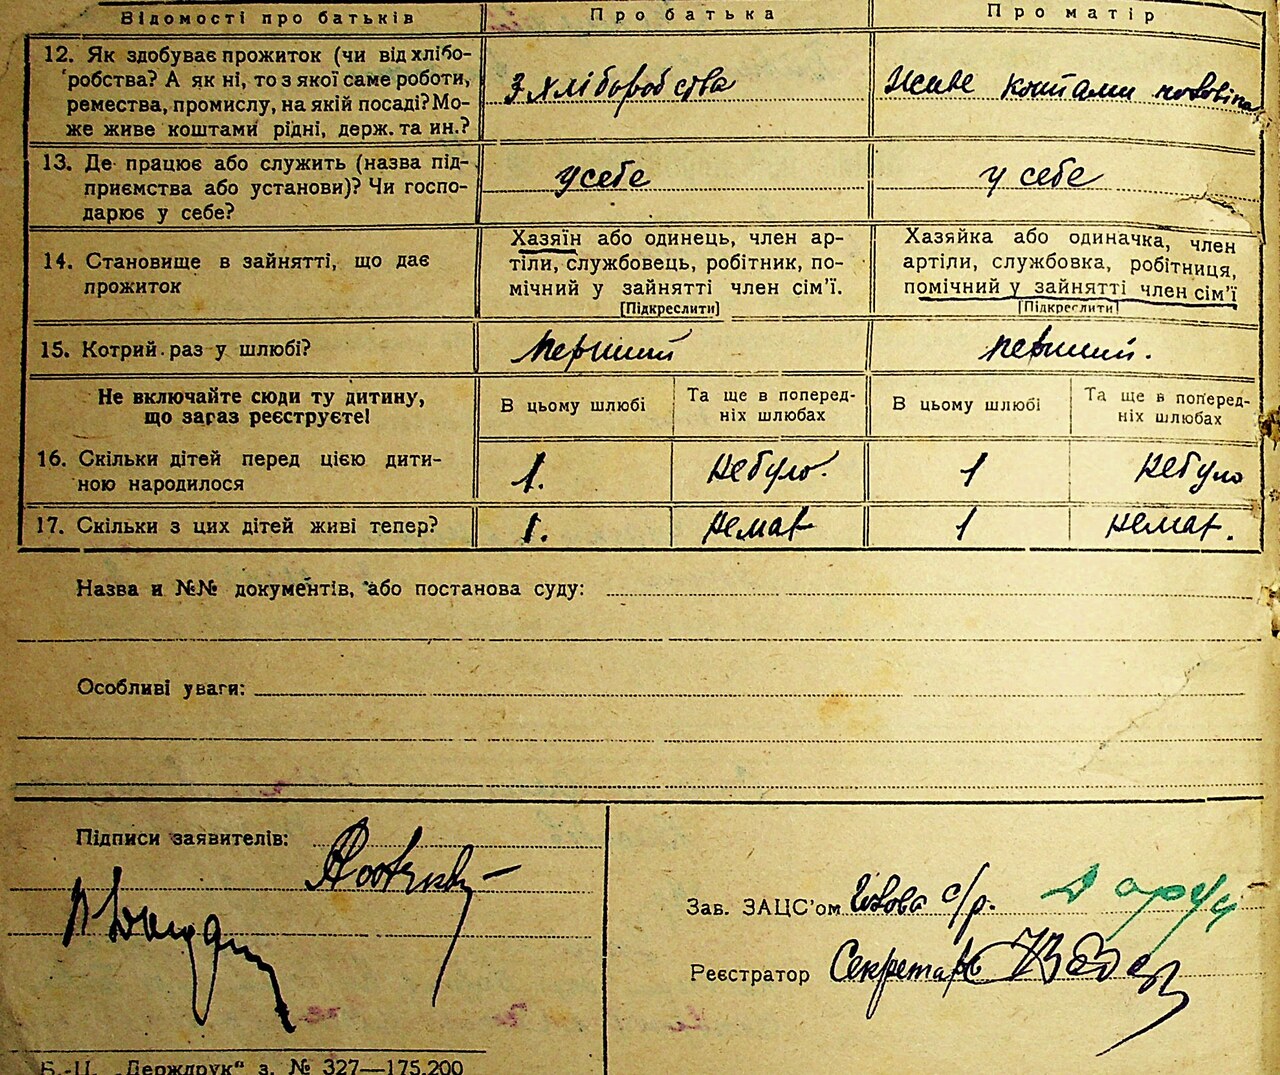 Відомості про батьків
Про батька
Про матір
12. Як здобуває прожиток (чи від хлібо-
робства? А як ні, то з якої саме роботи,
ремества, промислу, на якій посаді? Мо-
же живе коштами рідні, держ. та ин.?
З хліборобства
Живе коштами чоловіка
13. Де працює або служить (назва під-
приємства або установи)? Чи госпо-
дарює у себе?
у себе
у себе
14. Становище в зайнятті, що дає
прожиток
Хазяїн або одинець, член ар-
тіли, службовець, робітник, по-
мічний у зайнятті член сім'ї.
[Підкреслити]
Хазяйка або одиначка, член
артіли, службовка, робітниця,
помічний у зайнятті член сім'ї
[Підкреслити]
15. Котрий раз у шлюбі?
Перший
перший.
Не включайте сюди ту дитину,
що зараз реєструєте!
В цьому шлюбі
Та ще в поперед-
ніх шлюбах
В цьому шлюбі
Та ще в поперед-
ніх шлюбах
16. Скільки дітей перед цією дити-
ною народилося
1.
не було.
1
не було
17. Скільки з цих дітей живі тепер?
1.
немає
1
немає.
Назва и №№ документів, або постанова суду:
Особливі уваги:
Підписи заявителів:
Зав. ЗАЦС'ом Голова с/р.
Реєстратор Секретарь
Б.-Ц. „Держдрук“ з. № 327—175.200